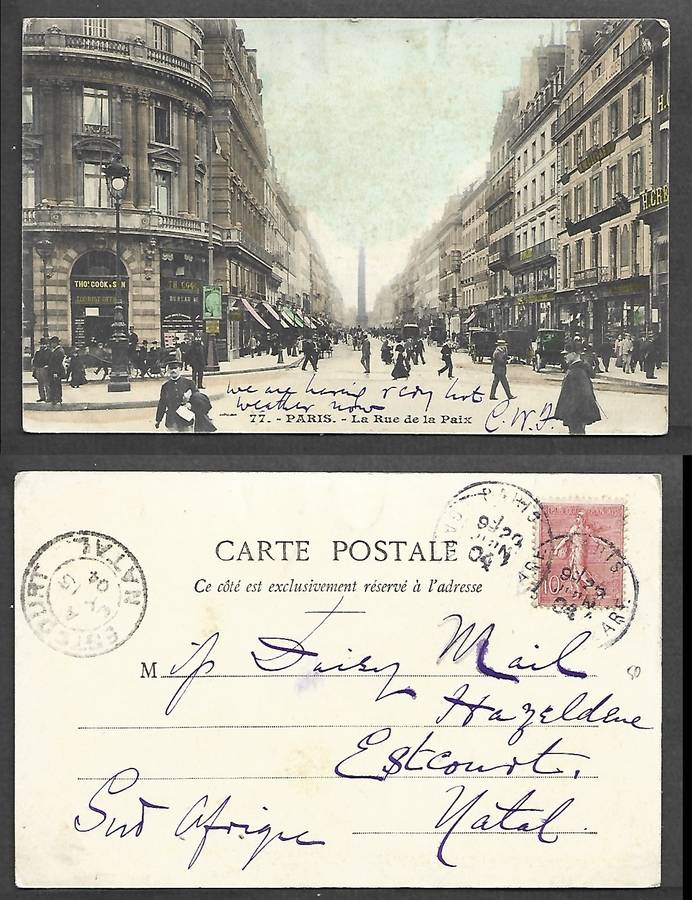 THOS COOK & SON
TOURIST OFFICE
TH. COOK
H. CRE
we are having very hot
weather now
C.W.F.
77. - PARIS. - La Rue de la Paix
CARTE POSTALE
Ce côté est exclusivement réservé à l'adresse
PARIS
04
10
ESTCOURT NATAL
15
04
M
Daisy Mail
Hazeldene
Estcourt.
Natal.
Sud Afrique
50